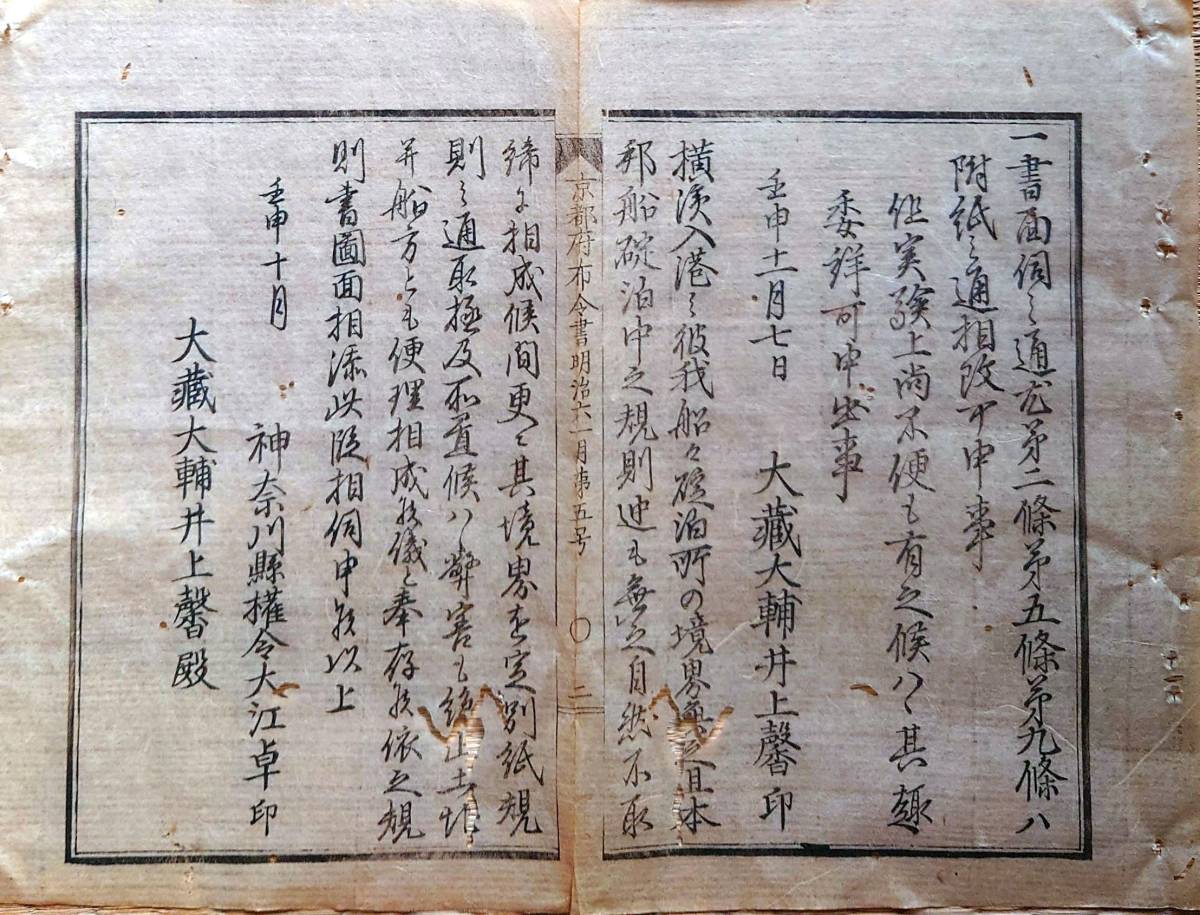 一書面伺之通尤第二條第五條第九條ハ
附紙之通相改可申事
但実験上尚不便も有之候ハヽ其趣
委詳可申出事
壬申十一月七日 大藏大輔井上馨 印
横濱入港之彼我船々碇泊所の境界無之且本
邦船碇泊中之規則迚も無之自然不取
京都府布令書明治六一月第五号 〇 二
締に相成候間更に其境界を定別紙規
則之通取極及布置候ハヽ弊害も絶止土地
并船方とも便理相成候儀と奉存候依之規
則書圖面相添此段相伺申候以上
壬申十月 神奈川縣權令大江卓 印
大藏大輔井上馨殿